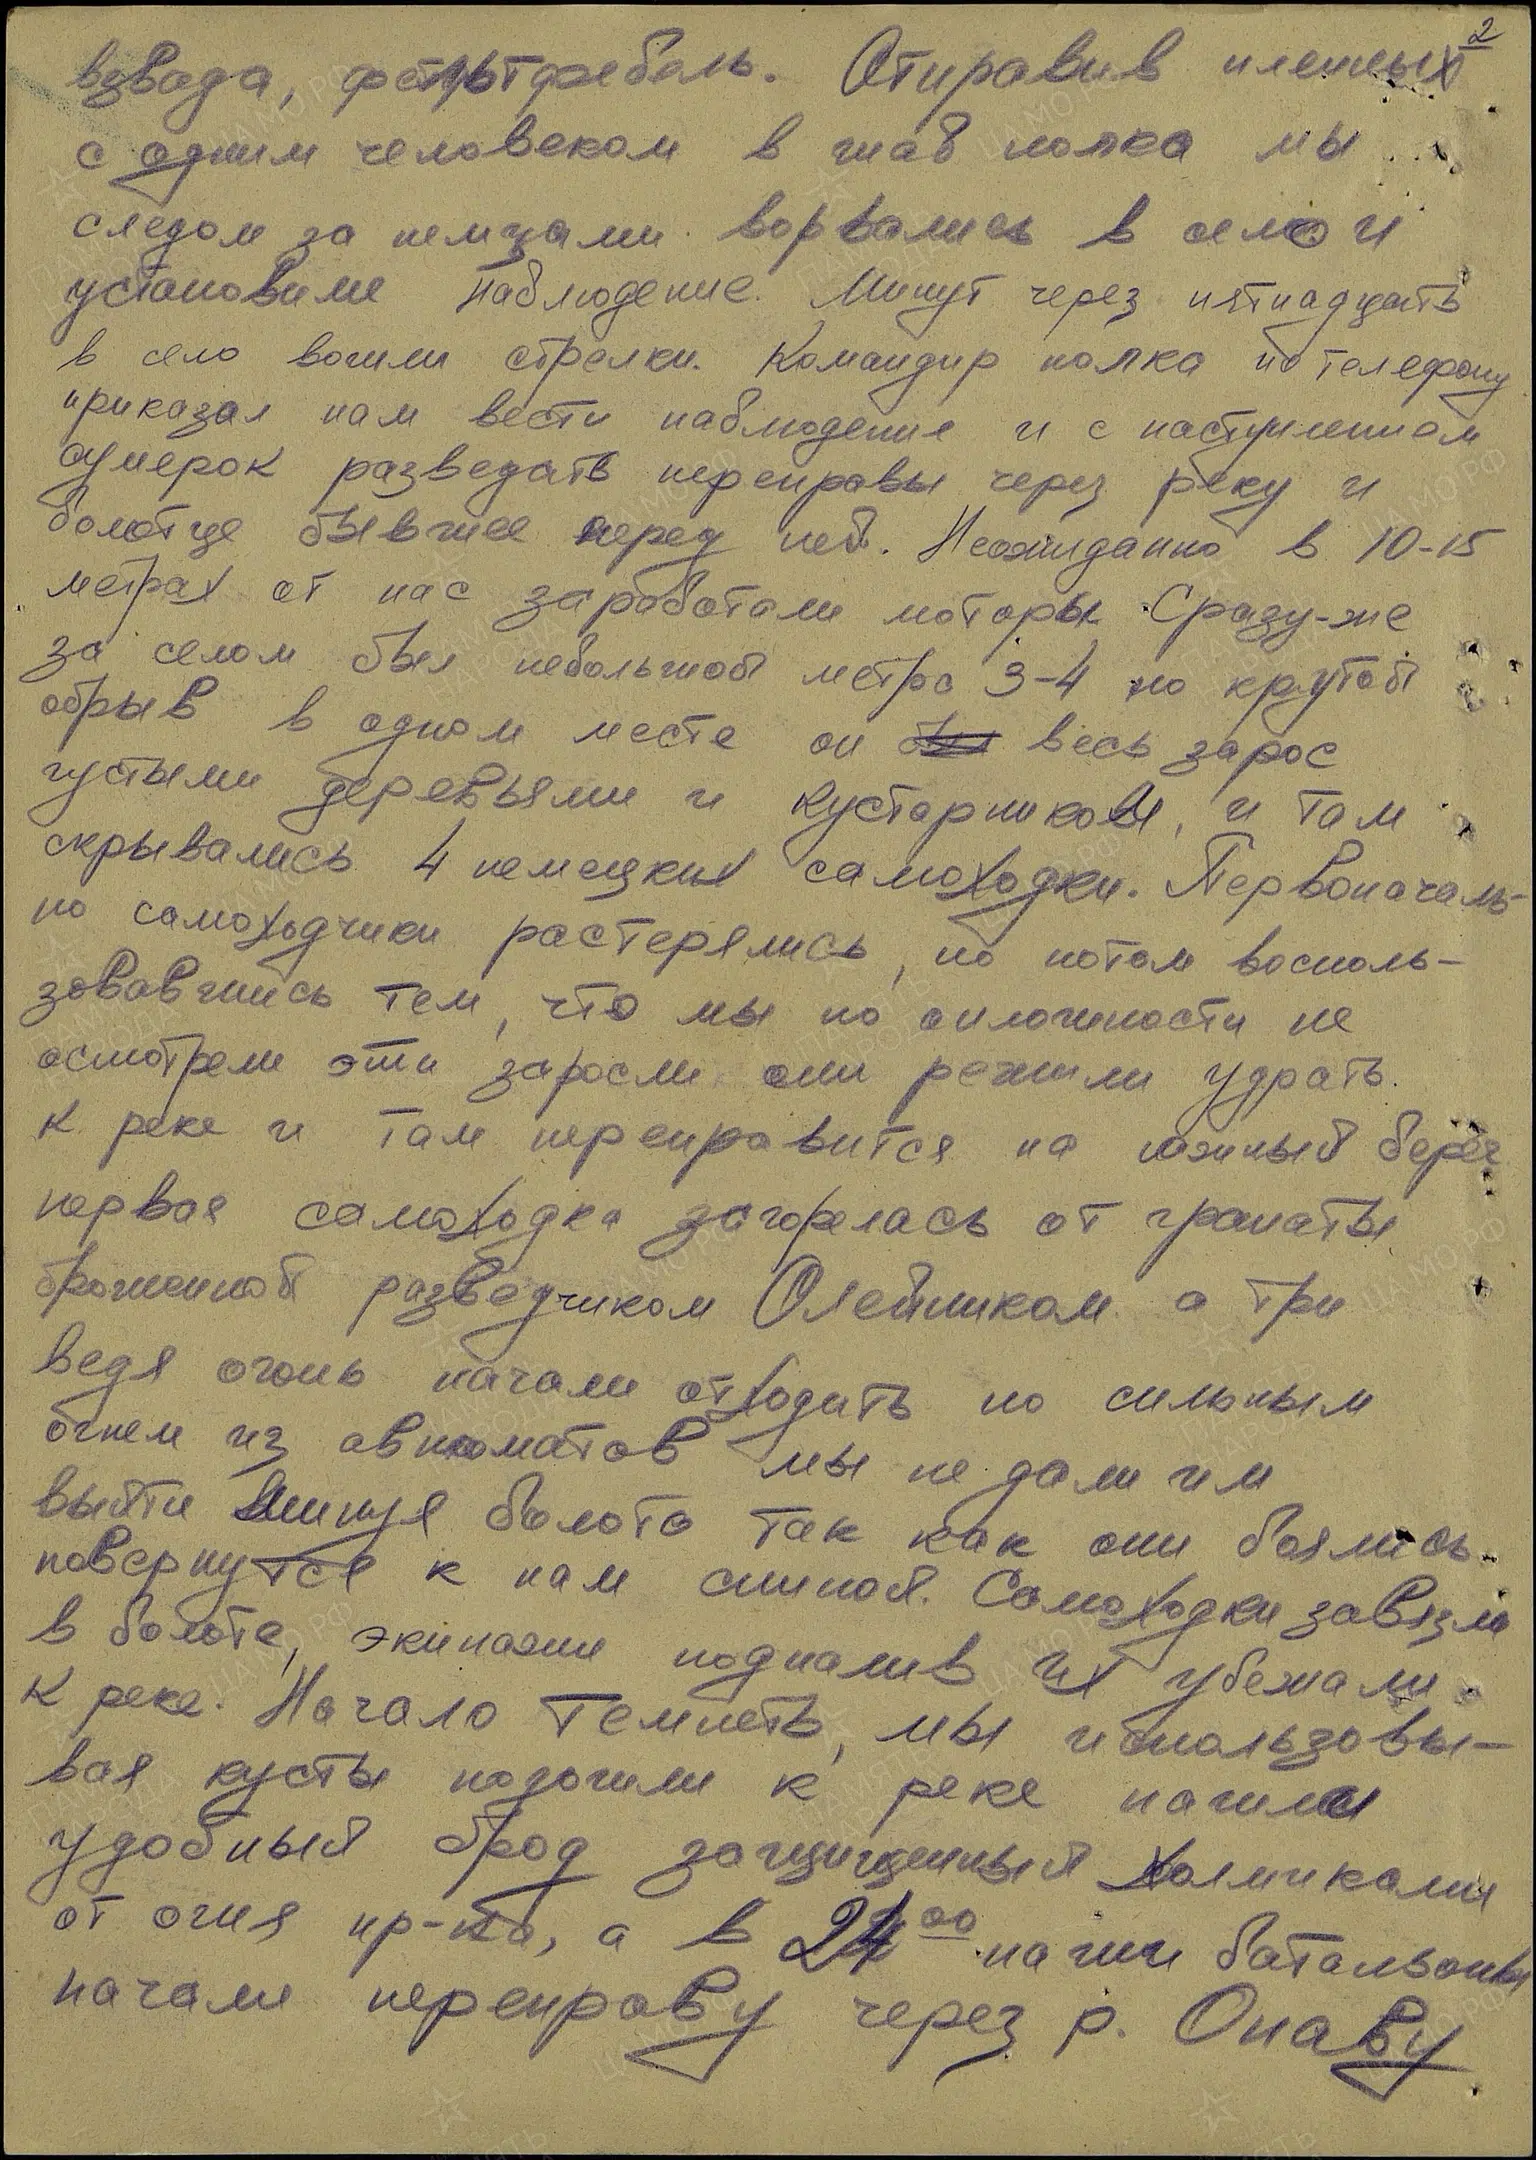 2
взвода, фельтфебель. Отправив пленных
с одним человеком в штаб полка мы
следом за немцами ворвались в село и
установили наблюдение. Минут через пятнадцать
в село вошли стрелки. Командир полка по телефону
приказал нам вести наблюдение и с наступлением
сумерок разведать переправы через реку и
болотце бывшее перед ней. Неожиданно в 10-15
метрах от нас заработали моторы. Сразу-же
за селом был небольшой метра 3-4 но крутой
обрыв в одном месте он весь зарос
густыми деревьями и кустарником, и там
скрывались 4 немецких самоходки. Первоначаль-
но самоходчики растерялись, но потом восполь-
зовавшись тем, что мы по оплошности не
осмотрели эти заросли они решили удрать
к реке и там переправится на южный берег
первая самоходка загорелась от гранаты
брошенной разведчиком Олейником а три
ведя огонь начали отходить но сильным
огнем из автоматов мы не дали им
выйти минуя болото так как они боялись
повернутся к нам спиной. Самоходки завязли
в болоте, экипажи подпалив их убежали
к реке. Начало темнеть, мы использовы-
вая кусты подошли к реке нашли
удобный брод защищенный холмиками
от огня пр-ка, а в 24 00 наши батальоны
начали переправу через р. Опаву